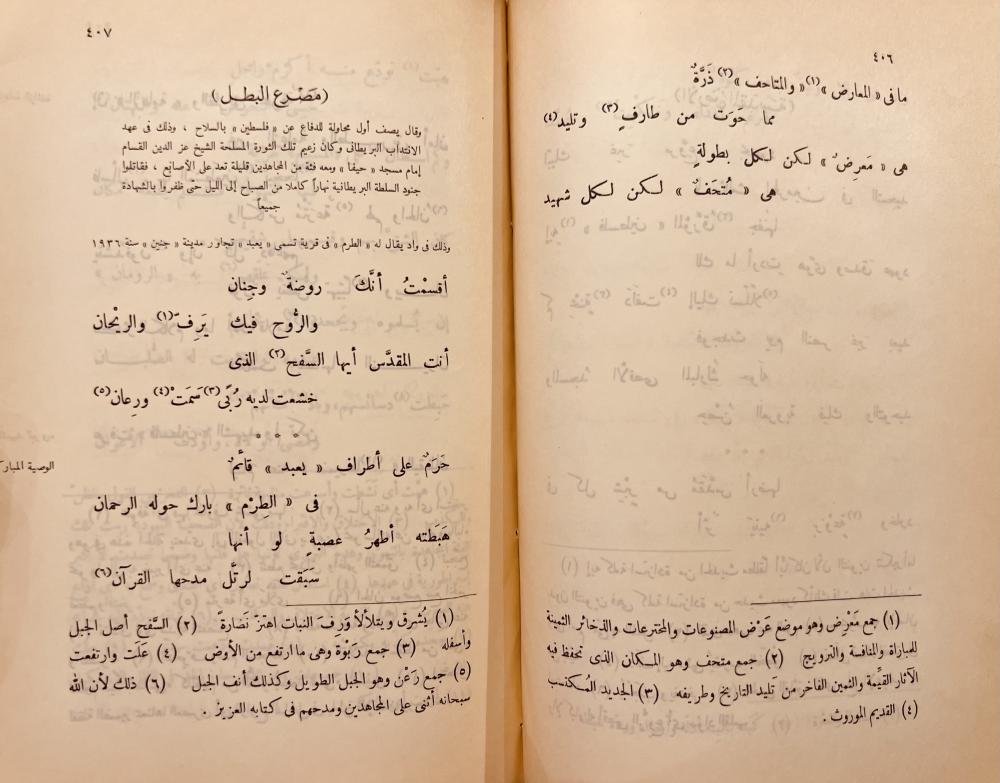 ٤٠٦
ما فى « المعارض »(١) « والمتاحف »(٢) ذَرَّةٌ
مما حَوَت من طارفٍ(٣) وتليد(٤)
هى « مَعرِضٌ » لكن لكل بطولةٍ
هى « مُتحَفٌ » لكن لكل شهيد
(١) جمع مَعْرِض وهو موضع عَرْض المصنوعات والمخترعات والذخائر الثمينة
للمباراة والمنافسة والترويج (٢) جمع متحف وهو المكان الذى تحفظ فيه
الآثار القيِّمة والثمين الفاخر من تليد التاريخ وطريفه (٣) الجديد المُكتسَب
(٤) القديم الموروث .
٤٠٧
(مَصْرع البطل)
وقال يصف أول محاولة للدفاع عن « فلسطين » بالسلاح ، وذلك فى عهد
الانتداب البريطانى وكان زعيم تلك الثورة المسلحة الشيخ عز الدين القسام
إمام مسجد « حيفا » ومعه فئة من المجاهدين قليلة تعد على الأصابع ، فقاتلوا
جنود السلطة البريطانية نهاراً كاملا من الصباح إلى الليل حتى ظفروا بالشهادة
جميعاً
وذلك فى واد يقال له « الطرم » فى قرية تسمى « يعبد » تجاور مدينة « جنين » سنة ١٩٣٦
أقسمْتُ أنَّكَ روضةٌ وجِنان
والرُّوح فيك يَرِفّ(١) والريْحان
أنت المقدَّس أيها السَّفح(٢) الذى
خشعت لديه رُبًى(٣) سَمَتْ(٤) ورِعان(٥)
حَرَمٌ على أطراف « يعبد » قائمٌ
فى « الطِرْم » بارك حوله الرحمان
هَبَطته أطهرُ عصبةٍ لو أنها
سَبَقت لرتَّل مدحها القرآن(٦)
(١) يُشرق ويتلألأ وَرفَ النبات اهتزّ نَضارةً (٢) السَّفح أصل الجبل
وأسفله (٣) جمع رَبْوَة وهى ما ارتفع من الأرض (٤) عَلَت وارتفعت
(٥) جمع رَعْن وهو الجبل الطويل وكذلك أنف الجبل (٦) ذلك لأن الله
سبحانه أثنى على المجاهدين ومدحهم فى كتابه العزيز .
الوصية المبار